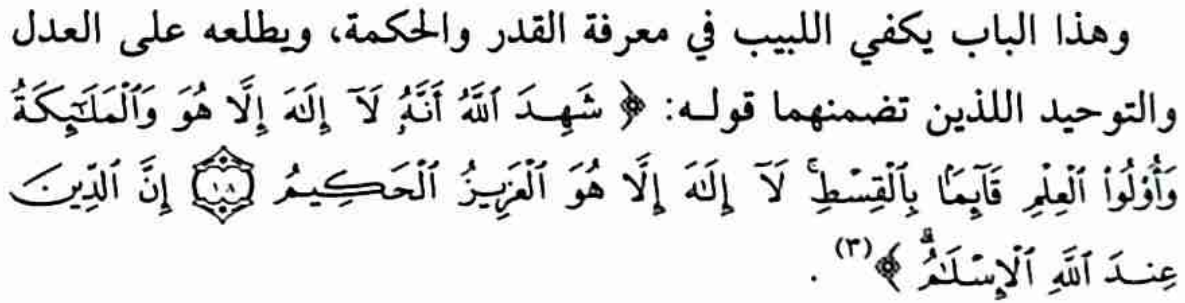 وهذا الباب يكفي اللبيب في معرفة القدر والحكمة، ويطلعه على العدل
والتوحيد اللذين تضمنهما قولـه: ﴿ شَهِدَ ٱللَّهُ أَنَّهُۥ لَآ إِلَٰهَ إِلَّا هُوَ وَٱلْمَلَٰٓئِكَةُ
وَأُو۟لُوا۟ ٱلْعِلْمِ قَآئِمًۢا بِٱلْقِسْطِ ۚ لَآ إِلَٰهَ إِلَّا هُوَ ٱلْعَزِيزُ ٱلْحَكِيمُ ۝١٨ إِنَّ ٱلدِّينَ
عِندَ ٱللَّهِ ٱلْإِسْلَٰمُ ۗ ﴾(٣) .